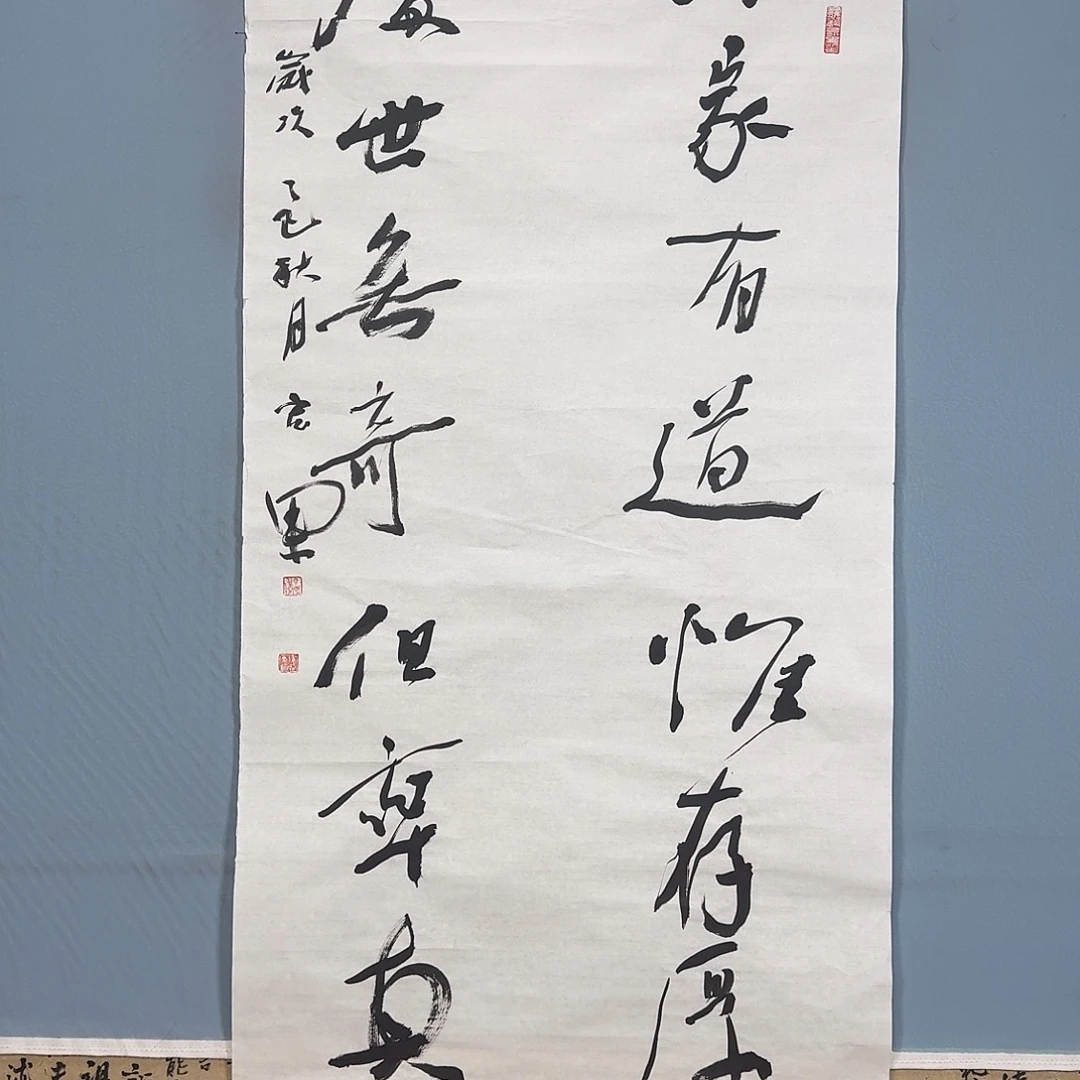 家有道惟存厚
處世無奇但率真
歲次乙巳秋月